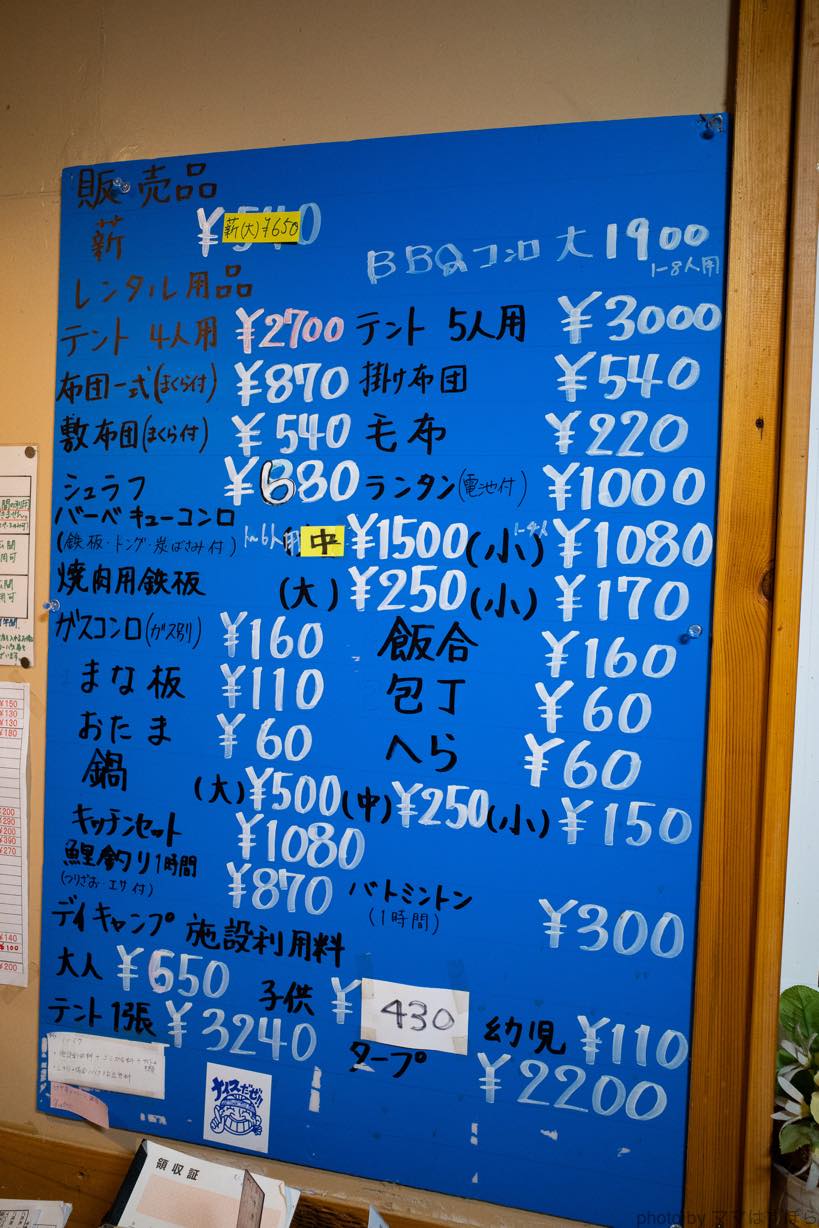 販売品
薪 ¥ 薪(大)¥650 0
BBQコンロ 大 1900
1-8人用
レンタル用品
テント 4人用 ¥2700 テント 5人用 ¥3000
布団一式(まくら付) ¥870 掛け布団 ¥540
敷布団(まくら付) ¥540 毛布 ¥220
シュラフ ¥680 ランタン(電池付) ¥1000
バーベキューコンロ
(鉄板・トング・炭ばさみ付) 1~6人用 中 ¥1500 (小) 1-4人 ¥1080
焼肉用鉄板 (大) ¥250 (小) ¥170
ガスコンロ(ガス別) ¥160 飯合 ¥160
まな板 ¥110 包丁 ¥60
おたま ¥60 へら ¥60
鍋 (大) ¥500 (中) ¥250 (小) ¥150
キッチンセット ¥1080
鯉釣り1時間 ¥870 バトミントン ¥300
(つりざお・エサ付) (1時間)
デイキャンプ 施設利用料
大人 ¥650 子供 ¥430 幼児 ¥110
テント1張 ¥3240 タープ ¥2200
ナイスだぜ!!
領収証
¥150
¥130
¥130
¥180
¥200
¥290
¥200
¥390
¥270
¥140
¥100
¥200
photo by